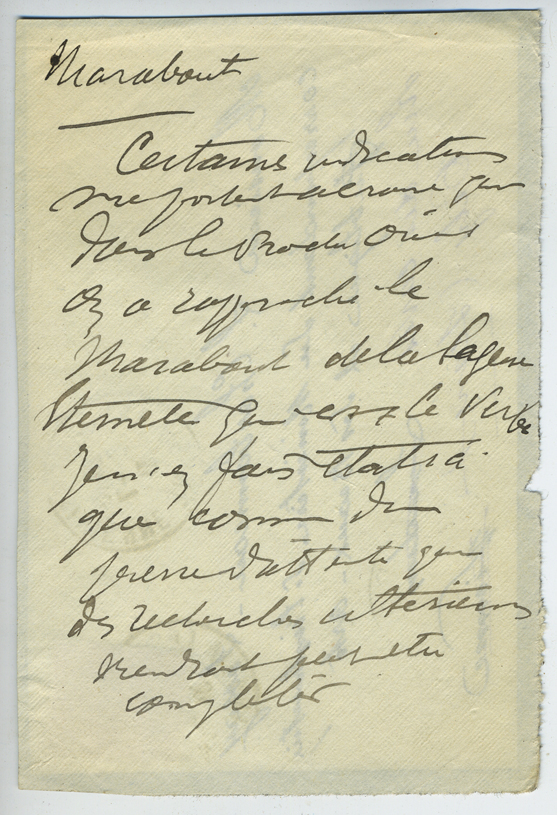 Marabout
Certaines indications
me portent a croire que
dans le Proche Orient
On a rapproché le
Marabout de la Sagesse
Eternelle qui est le Verbe
Je n'en fais état ici
que comme d'une
pierre d'attente que
des recherches ultérieures
viendront peut etre
compléter